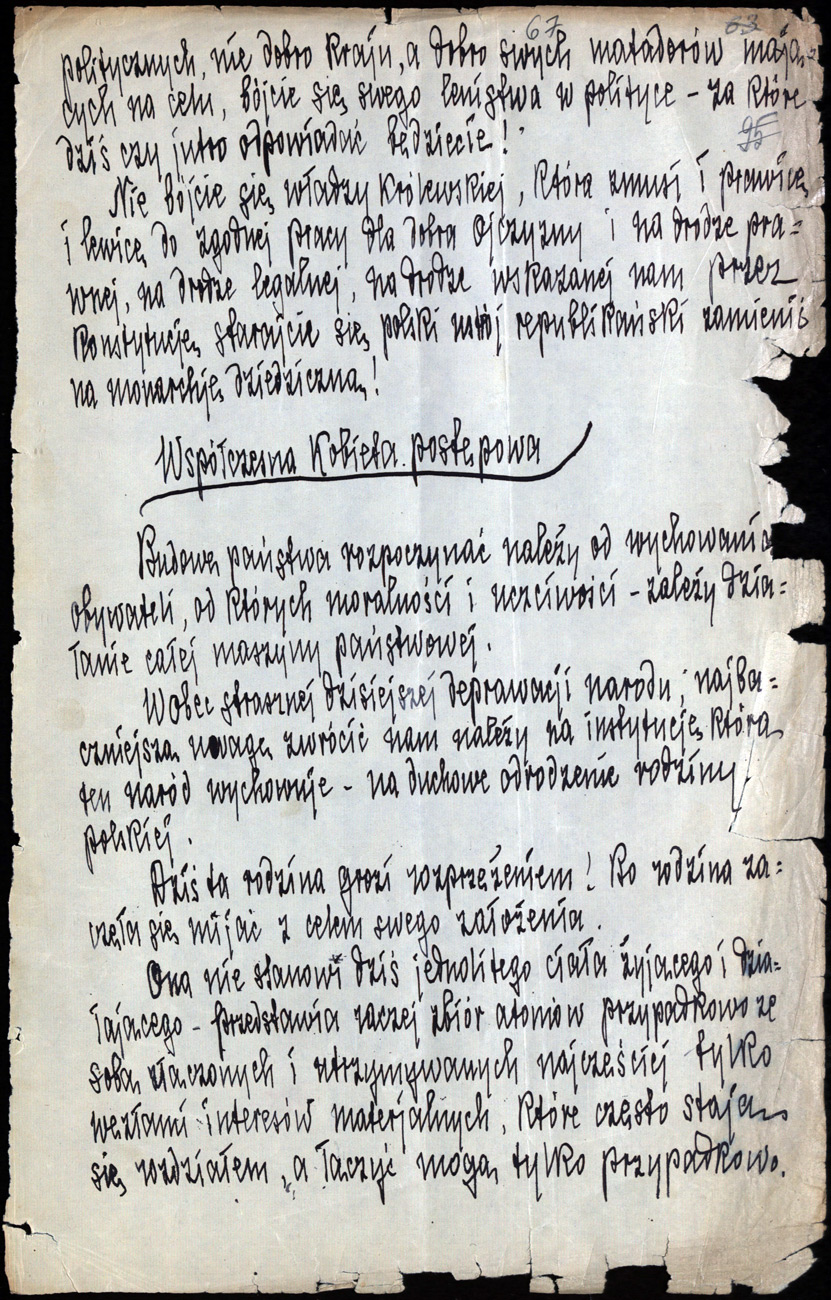 67 63
politycznych, nie dobro kraju, a dobro swych matadorów mają-
cych na celu, bójcie się swego lenistwa w polityce - za które
95
dziś czy jutro odpowiadać będziecie!
Nie bójcie się władzy Królewskiej, która zmusi i prawicę
i lewicę do zgodnej pracy dla dobra Ojczyzny i na drodze pra=
wnej, na drodze legalnej, na drodze wskazanej nam przez
Konstytucję starajcie się polski ustrój republikański zamienić
na monarchję dziedziczną!
Współczesna Kobieta postępowa
Budowę państwa rozpoczynać należy od wychowania
obywateli, od których moralności i uczciwości - zależy dzia=
łanie całej maszyny państwowej.
Wobec strasznej dzisiejszej deprawacji narodu, najba=
czniejszą uwagę zwrócić nam należy na instytucję, która
ten naród wychowuje - na duchowe odrodzenie rodziny
polskiej.
Dziś ta rodzina grozi rozprzężeniem! Bo rodzina za=
częła się mijać z celem swego założenia.
Ona nie stanowi dziś jednolitego ciała żyjącego i dzia=
łającego - przedstawia raczej zbiór atomów przypadkowo ze
sobą złączonych i utrzymywanych najczęściej tylko
węzłami interesów materjalnych, które często stają
się rozdziałem, a łączyć mogą tylko przypadkowo.